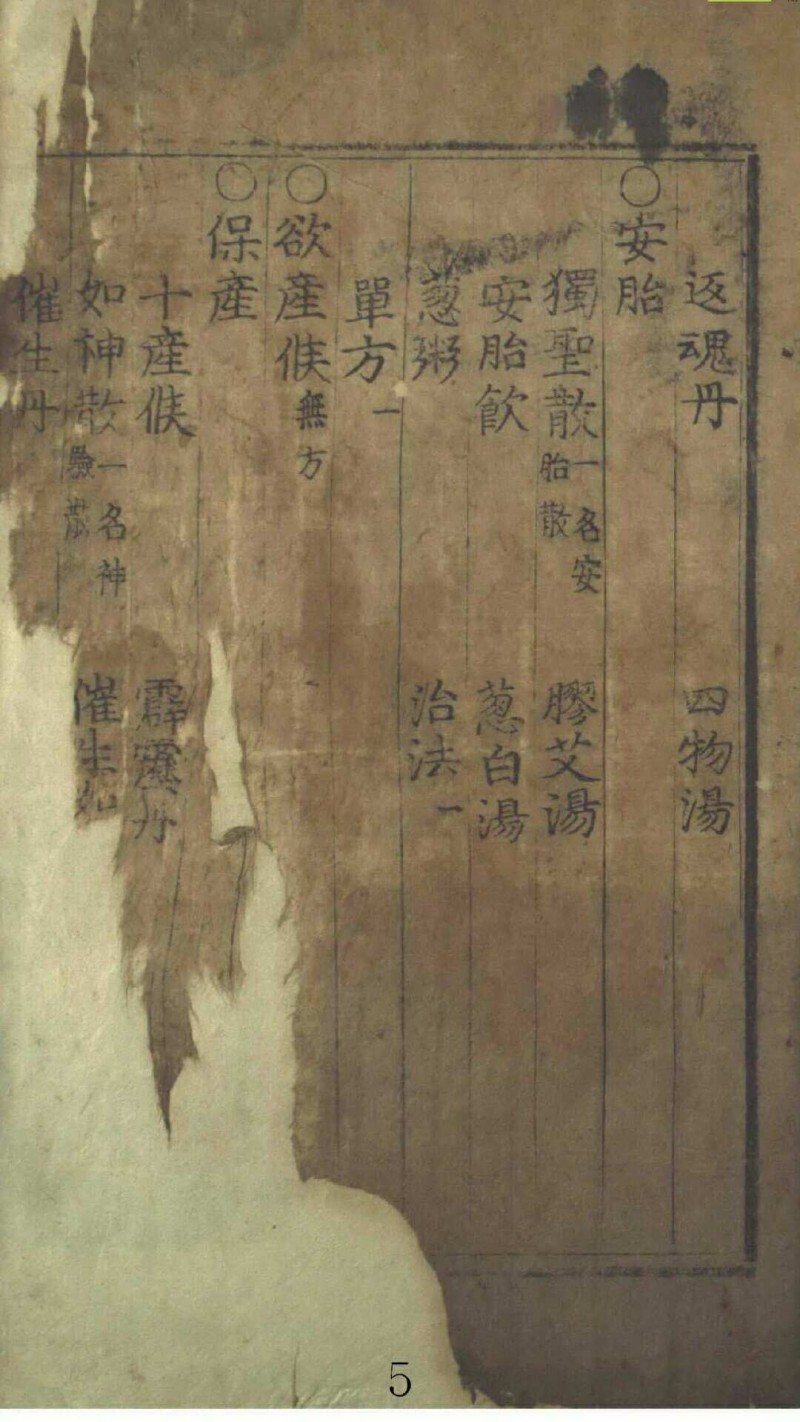 返魂丹 四物湯
○安胎
獨聖散一名安胎散 膠艾湯
安胎飲 葱白湯
葱粥 治法一
單方一
○欲產候無方
○保產
十產候 霹靂丹
如神散一名神驗散 催生如
催生丹
5